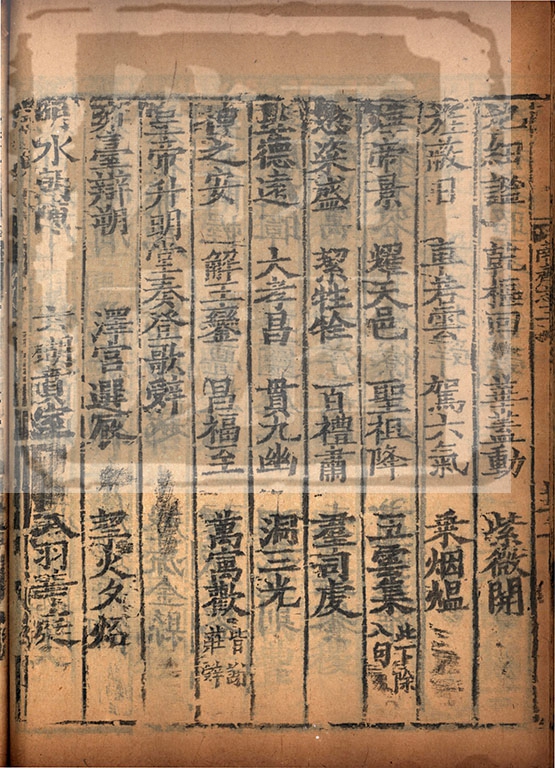 地紐謐 乾樞回 華蓋動 紫微開
旌蔽日 車若雲 駕六氣 乘烟熅
帝景 耀天邑 聖祖降 五靈集 此下除八句
懋粢盛 絜牲牷 百禮肅 羣司虔
聖德遠 大孝昌 貫九幽 洞三光
神之安 解玉鑾 昌福至 萬寓歡 皆謝莊辭
皇帝升明堂奏登歌辭
雍臺辯朔 澤宮選辰 挈火夕炤
水朝陳 六瑚賁室 八羽華庭